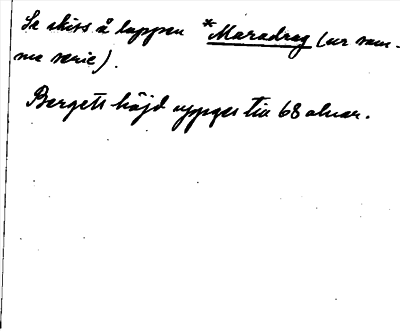 Se skiss å lappen *Maradrag (ur sam-
ma serie).
Bergets höjd uppges till 68 alnar.